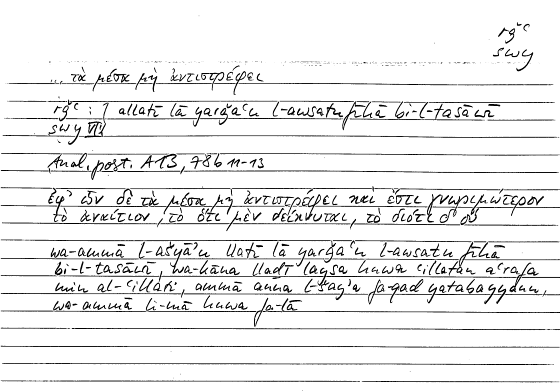 rǧʿ
swy
... τὰ μέσα μὴ ἀντιστρέφει
rǧʿ : 7 allatī lā yarǧaʿu l-awsaṭu fīhā bi-l-tasāwī
swy VI
Anal. post. A 13, 78b 11-13
ἐφ' ὧν δὲ τὰ μέσα μὴ ἀντιστρέφει καὶ ἔστι γνωριμώτερον
τὸ ἀναίτιον, τὸ ὅτι μὲν δείκνυται, τὸ διότι δ' οὔ
wa-ammā l-ašyāʾu llatī lā yarǧaʿu l-awsaṭu fīhā
bi-l-tasāwī, wa-kāna lladī laysa huwa ʿillatan aʿrafa
min al-ʿillati, ammā anna l-šayʾa fa-qad yatabayyanu,
wa-ammā li-mā huwa fa-lā